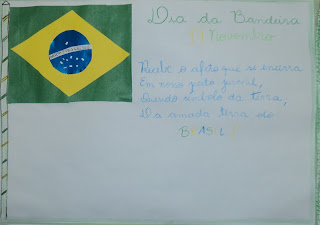 Dia da Bandeira
19 Novembro
Recebe o afeto que se encerra
Em nosso peito juvenil,
Querido símbolo da terra,
Da amada terra do
BRASIL